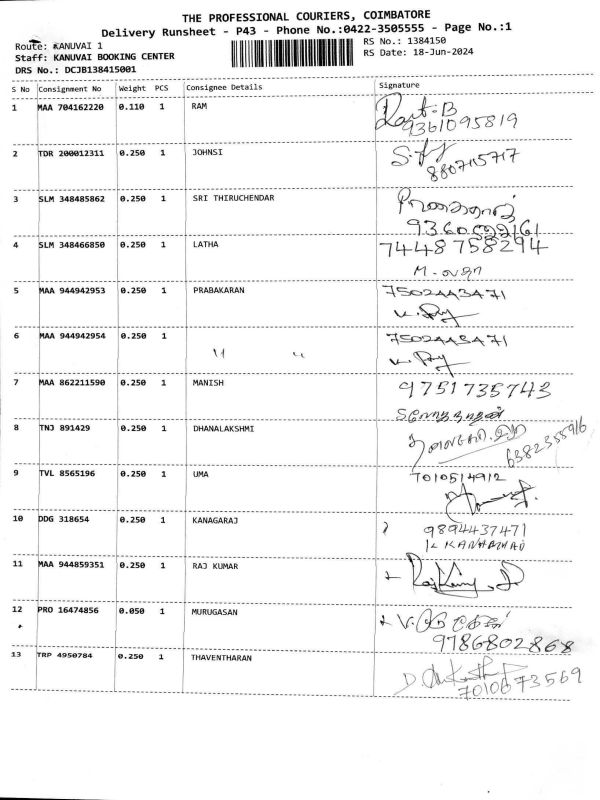 THE PROFESSIONAL COURIERS, COIMBATORE
Delivery Runsheet - P43 - Phone No.:0422-3505555 - Page No.:1
Route: KANUVAI 1
RS No.: 1384150
Staff: KANUVAI BOOKING CENTER
RS Date: 18-Jun-2024
DRS No.: DCJB138415001
S No Consignment No Weight PCS Consignee Details Signature
1 MAA 704162220 0.110 1 RAM
9361095819
2 TDR 200012311 0.250 1 JOHNSI
880715717
3 SLM 348485862 0.250 1 SRI THIRUCHENDAR
4 SLM 348466850 0.250 1 LATHA 7448758294
M. லதா
5 MAA 944942953 0.250 1 PRABAKARAN 7502443471
6 MAA 944942954 0.250 1 7502443471
7 MAA 862211590 0.250 1 MANISH 9751735743
8 TNJ 891429 0.250 1 DHANALAKSHMI
6382355916
9 TVL 8565196 0.250 1 UMA 7010514912
10 DDG 318654 0.250 1 KANAGARAJ 9894437471
11 MAA 944859351 0.250 1 RAJ KUMAR
12 PRO 16474856 0.050 1 MURUGASAN
9786802868
13 TRP 4950784 0.250 1 THAVENTHARAN
7010673569